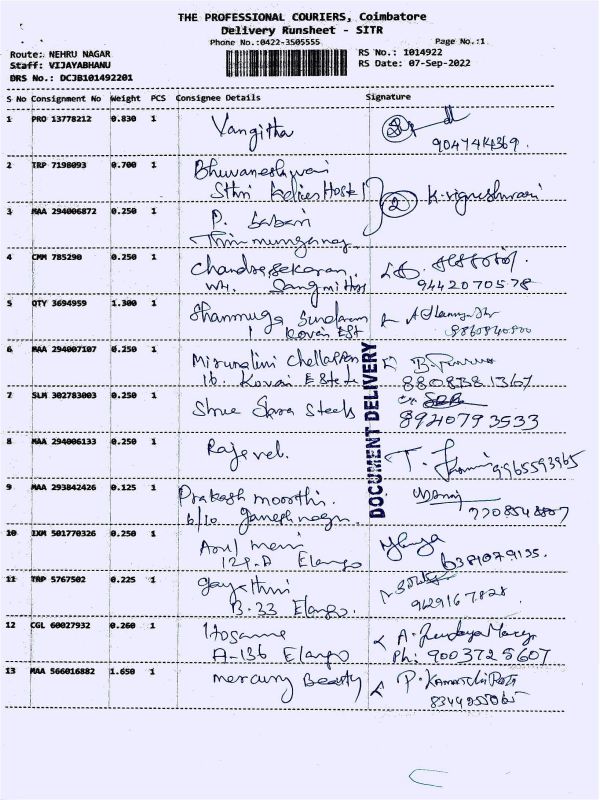 THE PROFESSIONAL COURIERS, Coimbatore
Delivery Runsheet - SITR
Phone No.:0422-3505555 Page No.:1
Route: NEHRU NAGAR RS No.: 1014922
Staff: VIJAYABHANU RS Date: 07-Sep-2022
DRS No.: DCJB101492201
S No Consignment No Weight PCS Consignee Details Signature
1 PRO 13778212 0.830 1 Vangitha
2 TRP 7198093 0.700 1 Bhuvaneshwari
Hostel 2 K. Vigneshwari
3 MAA 294006872 0.250 1 P. Sabari
4 CMM 785290 0.250 1 Chandrasekaran
9442070578
5 QTY 3694959 1.300 1 Shanmuga Sundaram
1 Kovai Est
6 MAA 294007107 0.250 1 Mirunalini Chellappan
16. Kovai Estate 8808381367
7 SLM 302783003 0.250 1 Shree Steels
8940793533
8 MAA 294006133 0.250 1 Rajavel. T.
9965593965
9 MAA 293842426 0.125 1 Prakash moorthi.
6/10 Ganesh nagar. 7708548807
10 IXM 501770326 0.250 1 Arul
129-A Elango 6381079135.
11 TRP 5767502 0.225 1 Gayathri
B-33 Elango. 9629167828
12 CGL 60027932 0.260 1 A.
A-136 Elango Ph: 9003725607
13 MAA 566016882 1.650 1 mercury Beauty P.
8344255065
DOCUMENT DELIVERY